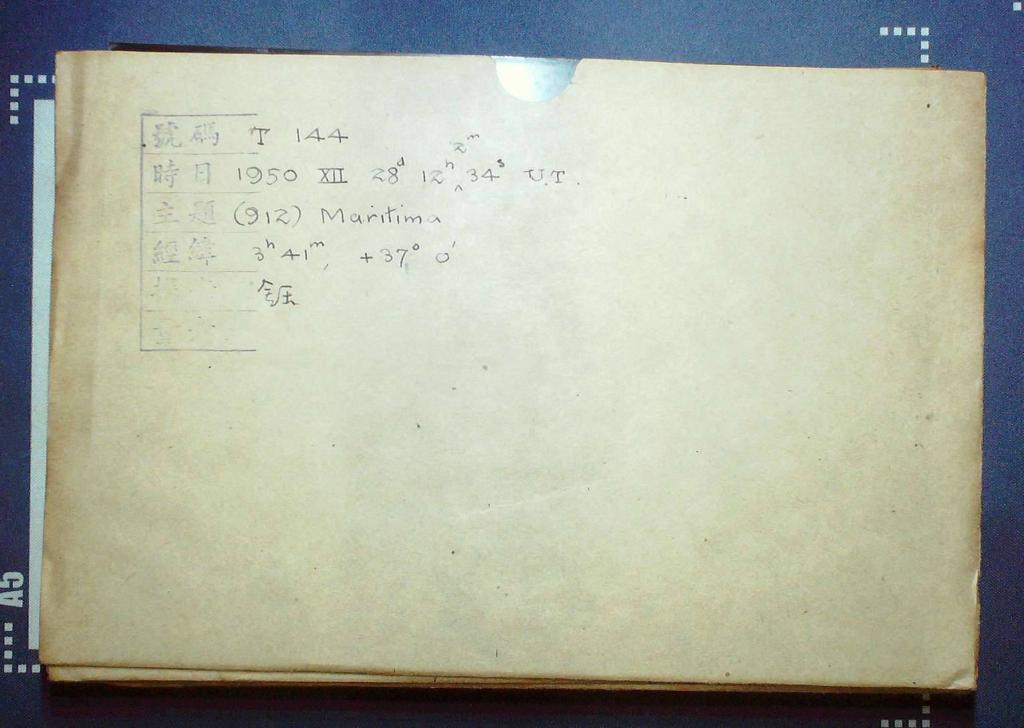 號碼 T 144
時日 1950 XII 28ᵈ 12ʰ 2ᵐ 34ˢ U.T.
主題 (912) Maritima
經緯 3ʰ 41ᵐ, +37° 0'
A5